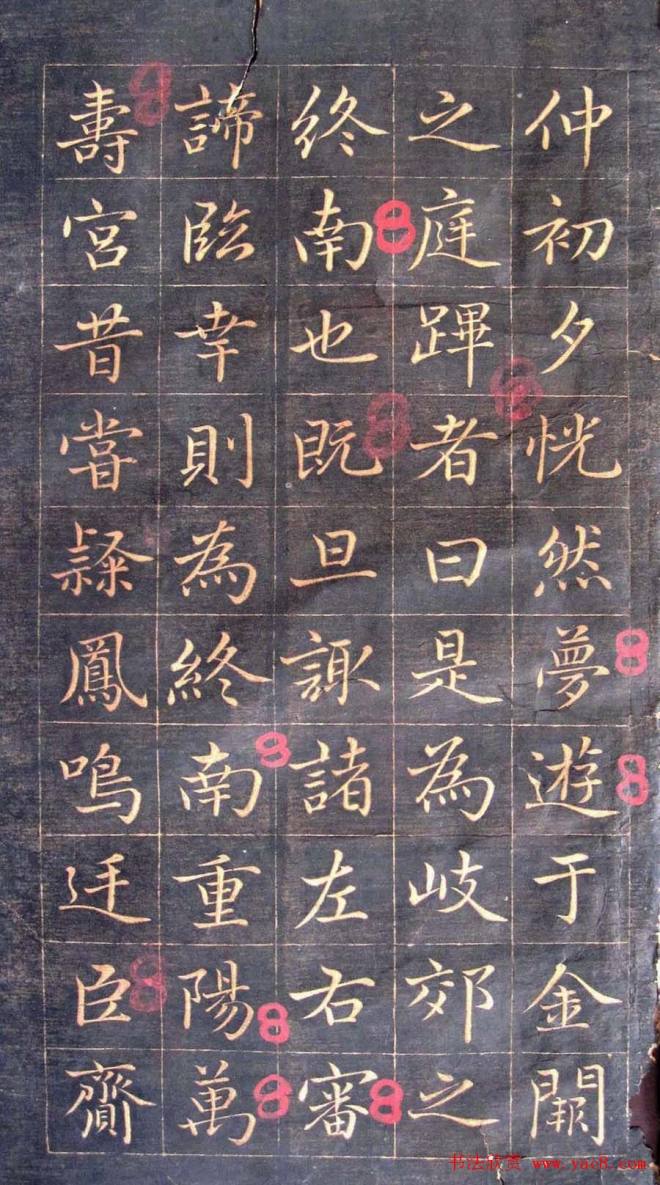 仲初夕恍然夢遊于金闕
之庭蹕者曰是為岐郊之
終南也既旦諏諸左右審
諦臨幸則為終南重陽萬
壽宮昔嘗隸鳳鳴迋臣齎
书法欣赏 www.yac8.com